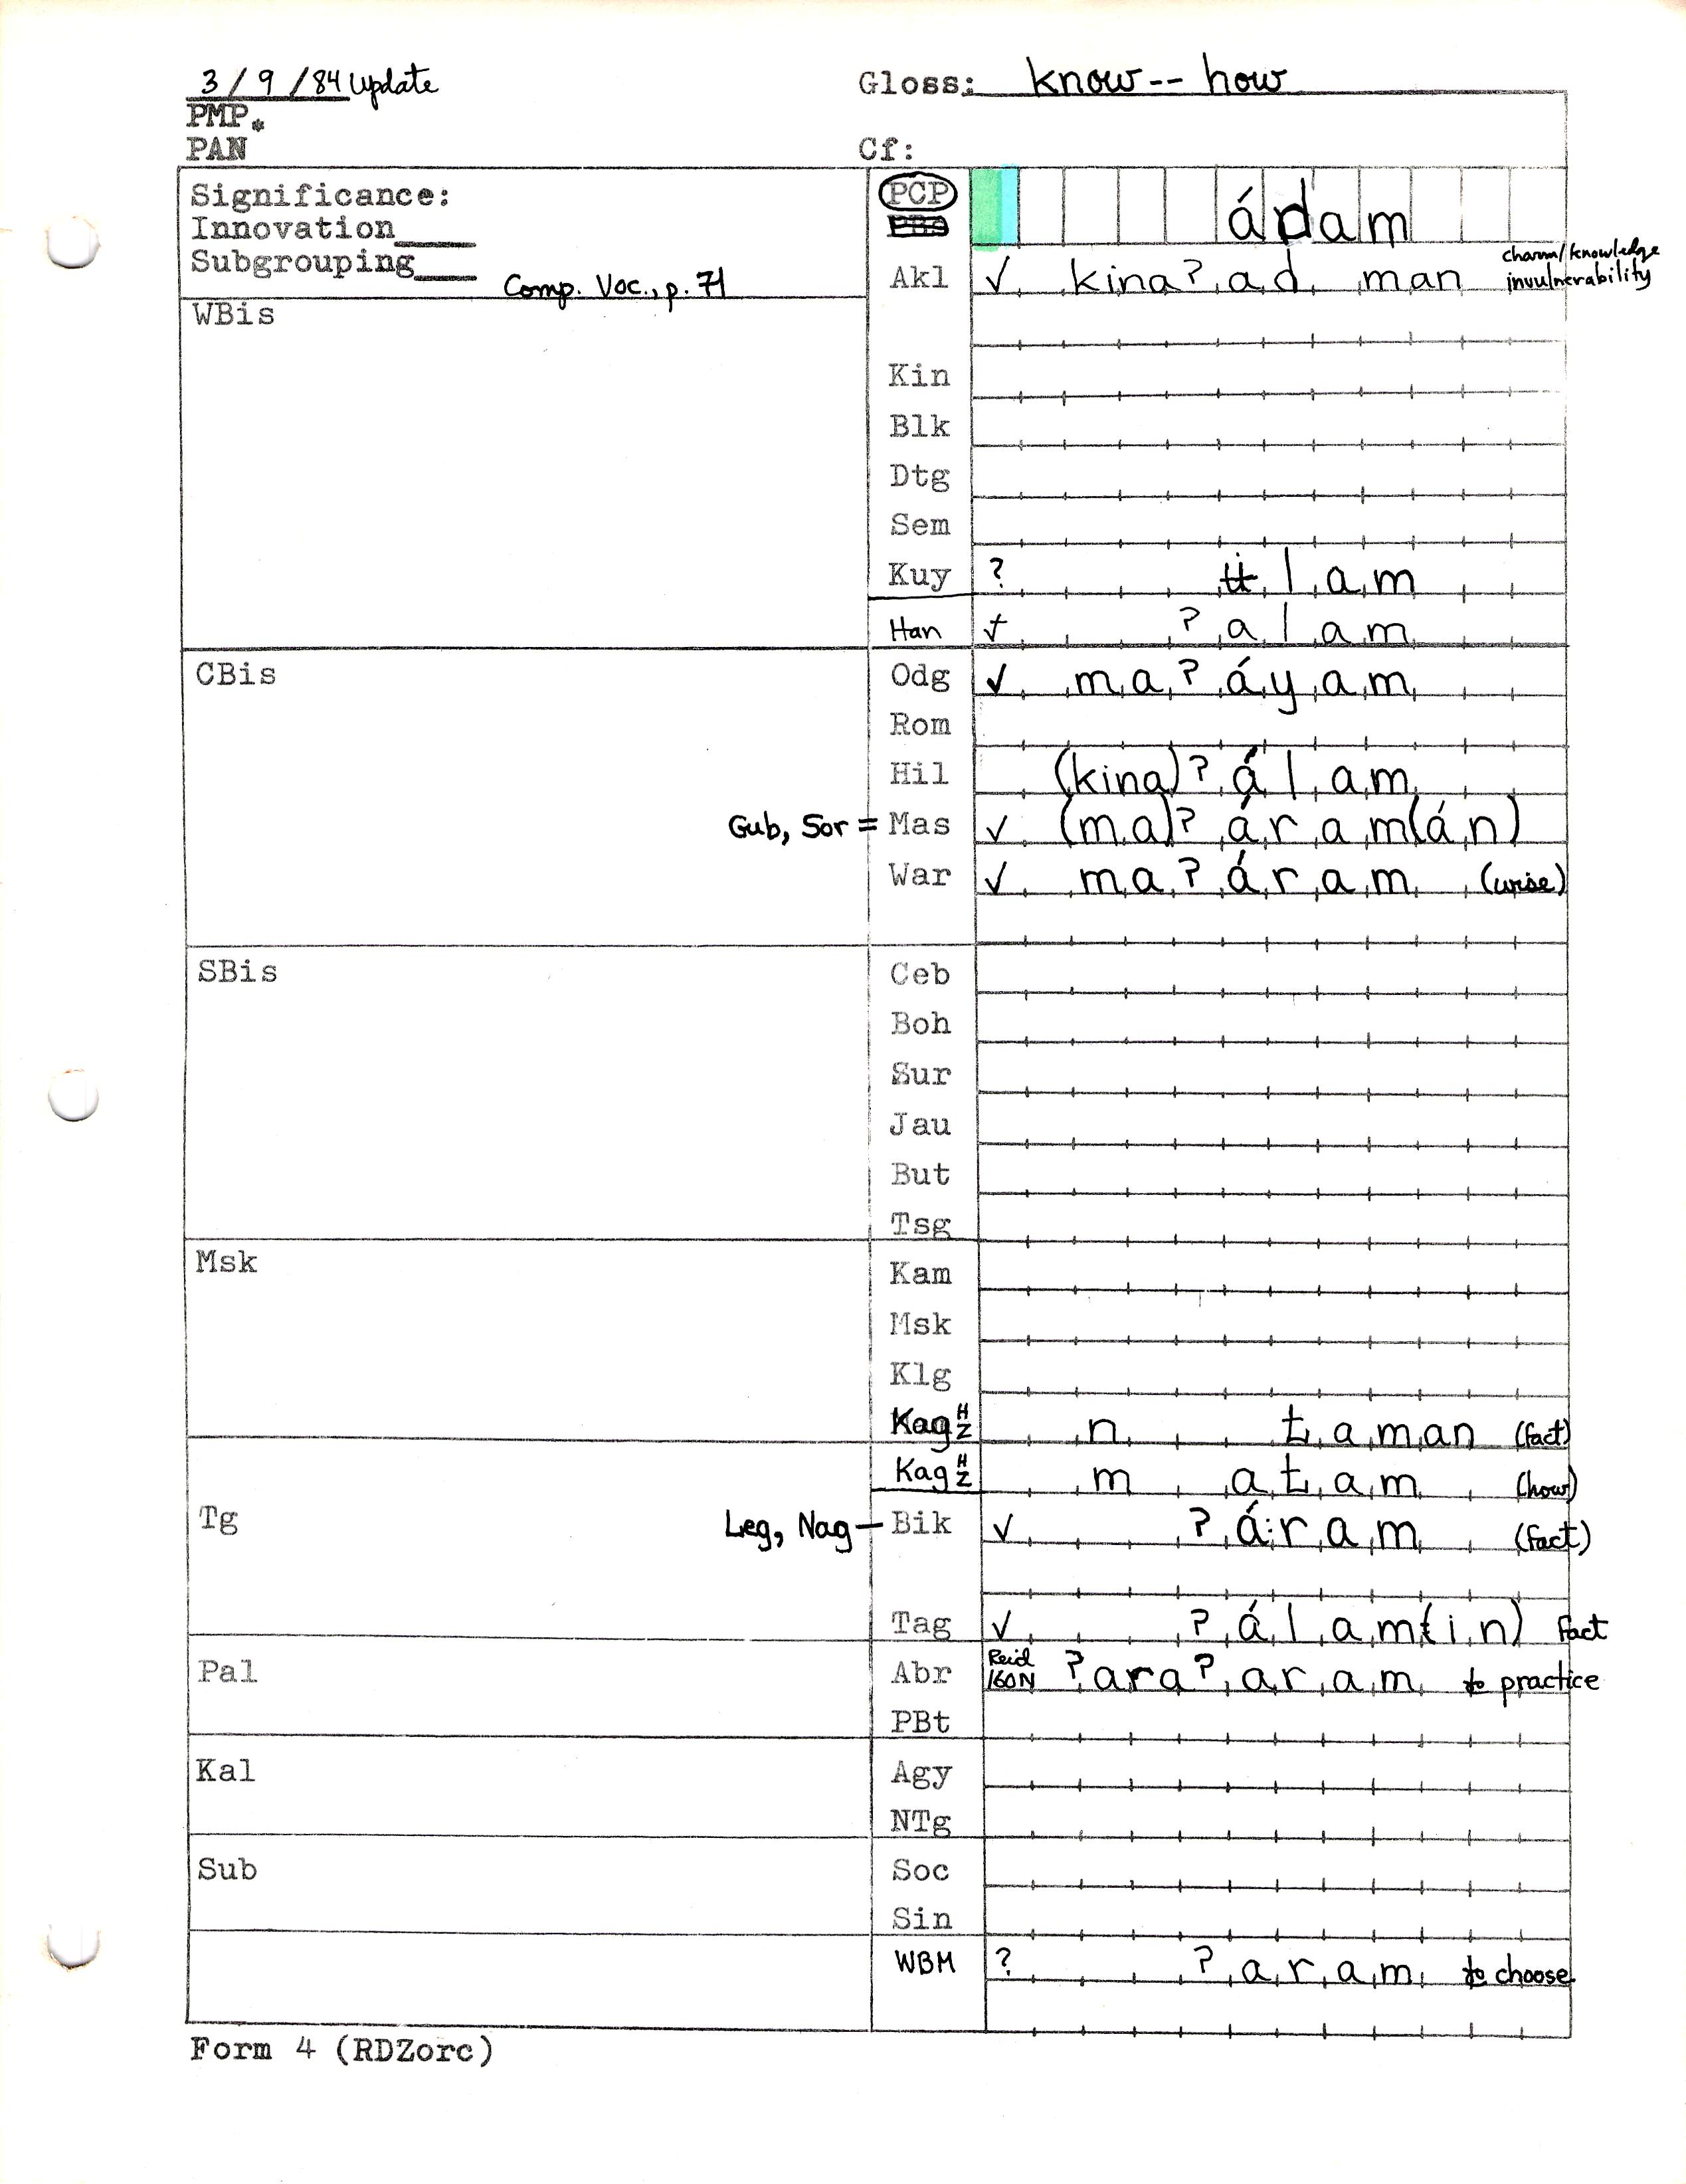 3/9/84 Update Gloss: know--how
PMP*
PAN Cf:
Significance: PCP ádam
Innovation____ PBs
Subgrouping____ Akl ✓ kina?ad man charm/knowledge invulnerability
Comp. Voc., p. 71
WBis
Kin
Blk
Dtg
Sem
Kuy ? lam
Han ✓ ?alam
CBis Odg ✓ ma?áyam
Rom
Hil (kina)?álam
Gub, Sor = Mas ✓ (ma)?áram(án)
War ✓ ma?áram (wise)
SBis Ceb
Boh
Sur
Jau
But
Tsg
Msk Kam
Msk
Klg
Kag H/Z n taman (fact)
Kag H/Z m atam (how)
Tg Leg, Nag — Bik ✓ ?á:ram (fact)
Tag ✓ ?álam(in) fact
Pal Abr Reid 160N ?ara?aram to practice
PBt
Kal Agy
NTg
Sub Soc
Sin
WBM ? ?aram to choose
Form 4 (RDZorc)